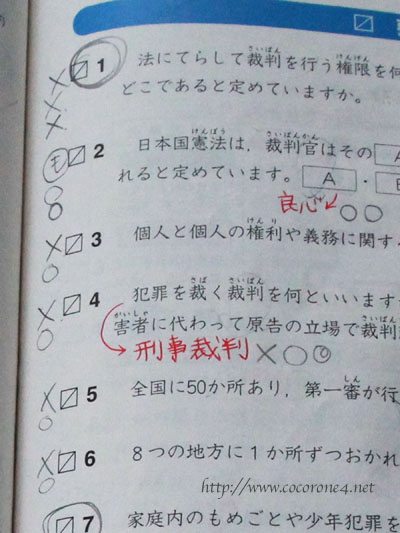 1 法にてらして裁判を行う権限を
どこであると定めていますか。
2 日本国憲法は，裁判官はその A
れると定めています。 A ・
良心
3 個人と個人の権利や義務に関す
4 犯罪を裁く裁判を何といいます
害者に代わって原告の立場で裁判
刑事裁判
5 全国に50か所あり，第一審が行
6 8つの地方に1か所ずつおかれ
http://www.cocorone4.net
7 家庭内のもめごとや少年犯罪を